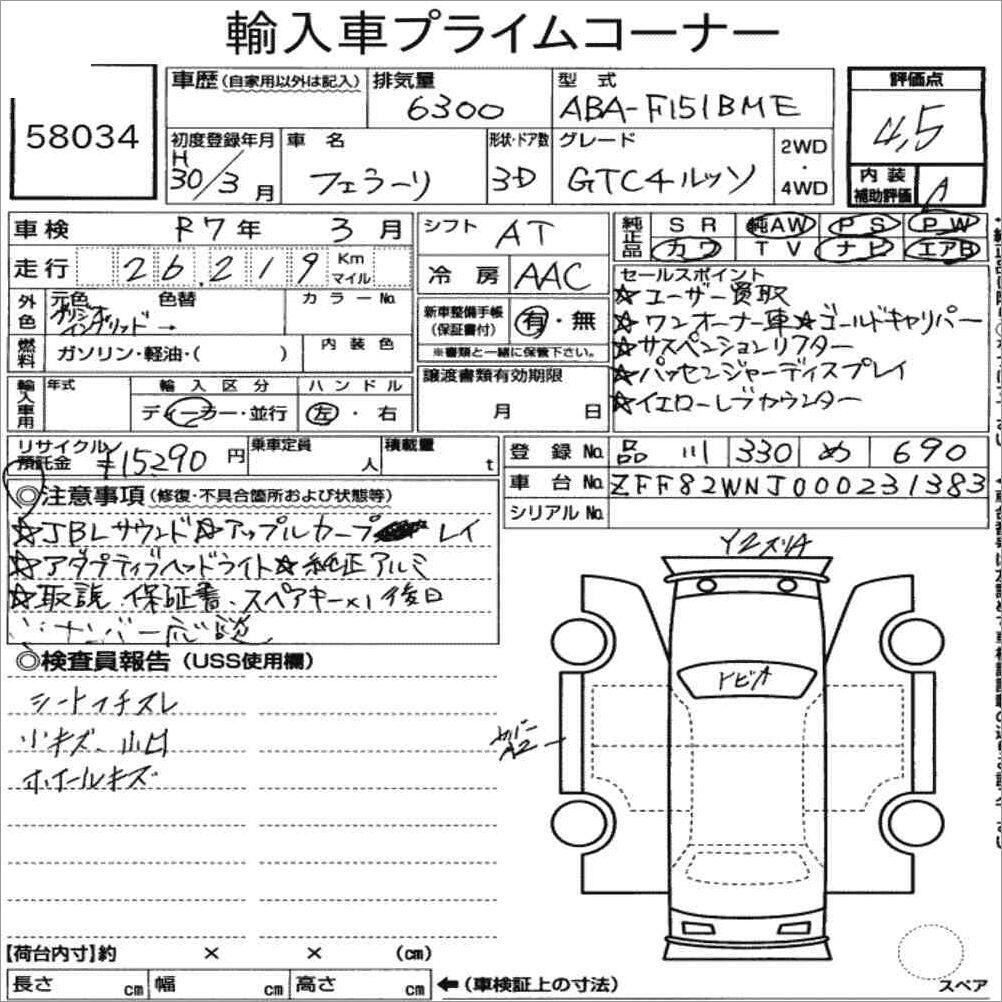 輸入車プライムコーナー
58034
車歴(自家用以外は記入)
排気量
6300
型式
ABA-F151BME
評価点
4,5
初度登録年月
H30/3月
車名
フェラーリ
形状・ドア数
3-D
グレード
GTC4ルッソ
2WD
・
4WD
内装
補助評価
A
車検 R7年 3月
シフト AT
純正品
SR 純AW PS PW
カワ TV ナビ エアB
走行 26,219 Km マイル
冷房 AAC
セールスポイント
☆ユーザー買取
☆ワンオーナー車☆ゴールドキャリパー
☆サスペンションリフター
☆パッセンジャーディスプレイ
☆イエローレブカウンター
外色
元色 色替 カラーNo.
→
新車整備手帳
(保証書付)
有・無
※書類と一緒に保管下さい。
燃料
ガソリン・軽油・( )
内装色
輸入車用
年式
輸入区分
ディーラー・並行
ハンドル
左・右
譲渡書類有効期限
月 日
リサイクル
預託金
¥15290円
乗車定員
人
積載量
t
登録No. 品川 330 め 690
車台No. ZFF82WNJ000231383
シリアルNo.
◎注意事項(修復・不具合箇所および状態等)
☆JBLサウンド☆アップルカープレイ
☆アダプティブヘッドライト☆純正アルミ
☆取説、保証書、スペアキー×1後日
◎検査員報告(USS使用欄)
シートイチスレ
小キズ、凹
ホイールキズ
Y2スリA
トビA
A2
【荷台内寸】約 × × (cm)
長さ cm 幅 cm 高さ cm ←(車検証上の寸法)
スペア